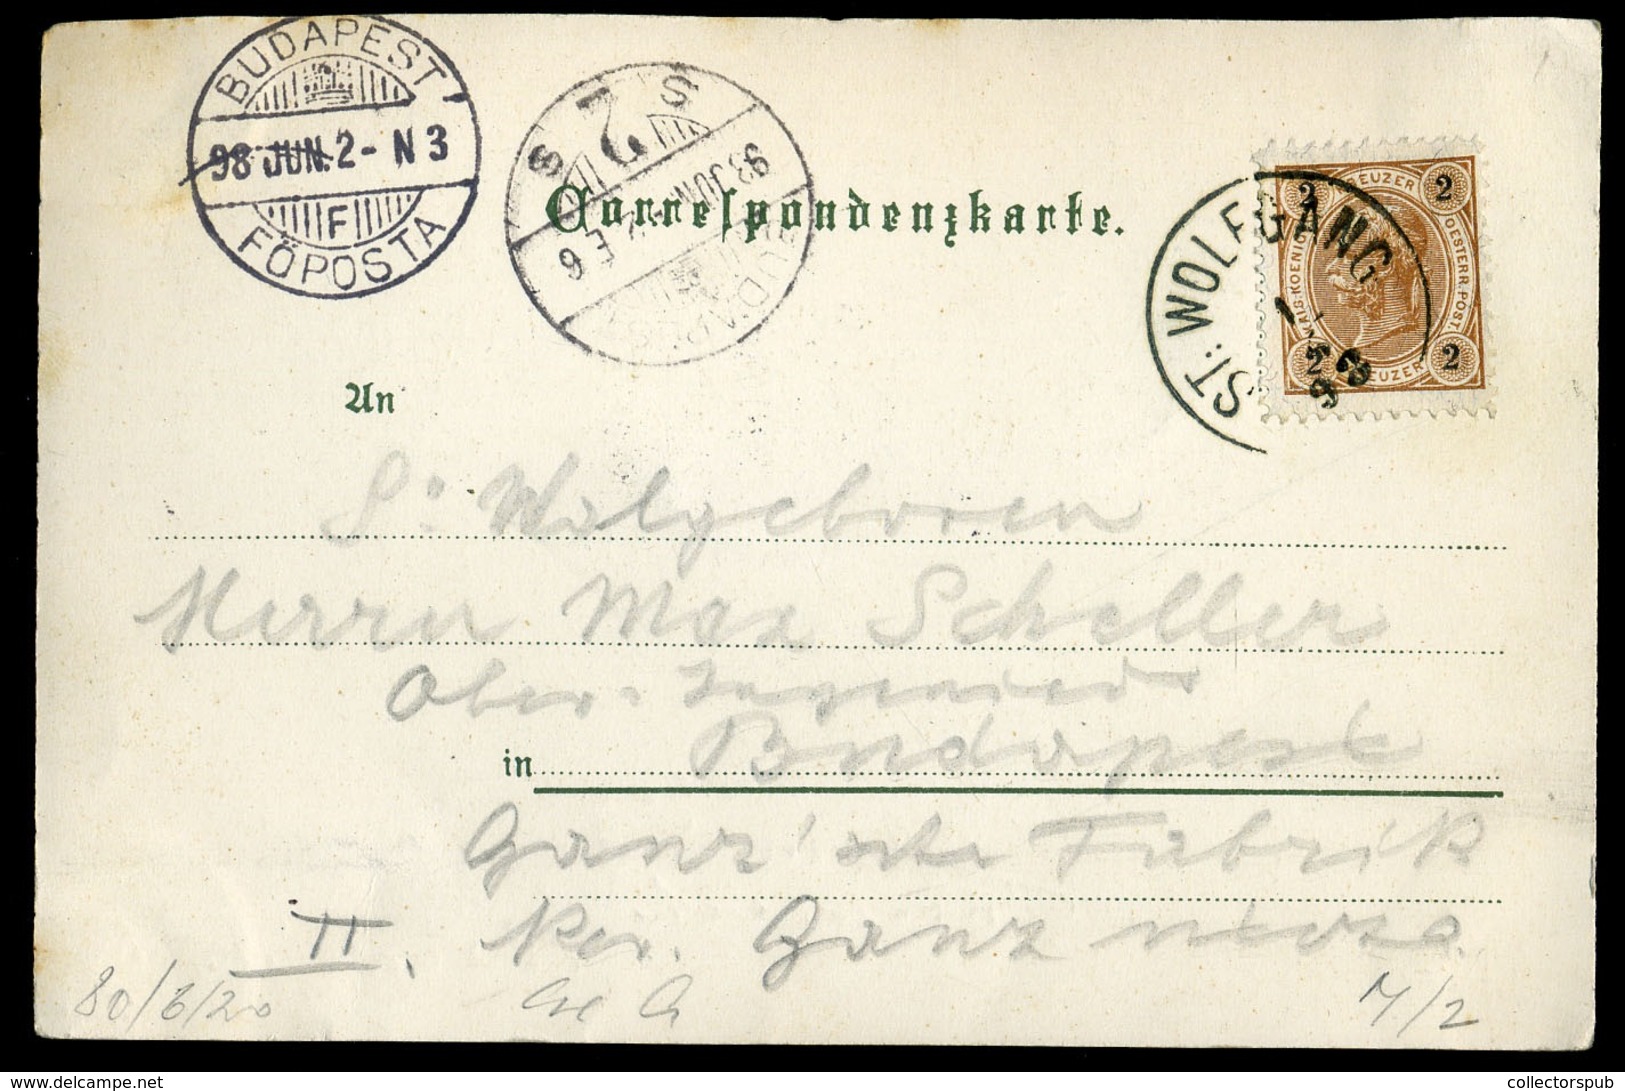 BUDAPEST
98 JUN. 2 - N 3
F
FŐPOSTA
98 JUN
E 6
BUDAPEST
Correspondenzkarte.
ST: WOLFGANG
1
98
2 KREUZER 2
KAIS. KOENIGL. OESTERR. POST.
2 KREUZER 2
An
S: Wolgeboren
Herrn Max Scheller
Ober-Ingenieur
in Budapest
Ganz'sche Fabrik
II. Ker. Ganz utcza.
80/6/20
M/2
collectorspub
delcampe.net